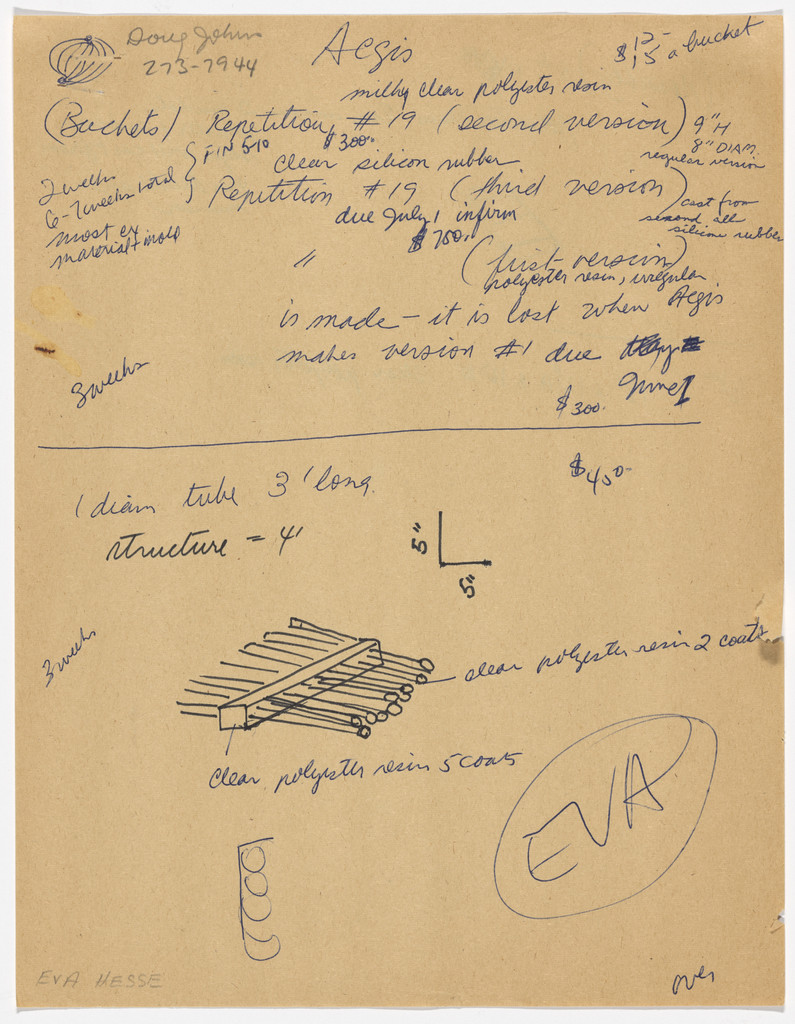 Doug Johns
273-7944
Aegis
$12-
$15 a bucket
milky clear polyester resin
(Buchets) Repetition, #19 (second version)
9"H
8" DIAM.
regular version
FIN 5-10
$300.
clear silicon rubber
2 weeks
6-7 weeks total
most ex
material + mold
Repetition #19 (third version)
cast from
second all
silicone rubber
due July 1 in firm
$750.
" (first version)
polyester resin, irregular
is made - it is lost when Aegis
makes version #1 due
June 1
$300.
3 weeks
1 diam tube 3' long.
$450-
structure = 4'
5"
5"
3 weeks
clear polyester resin 2 coats
clear polyester resin 5 coats
EVA
EVA HESSE
over